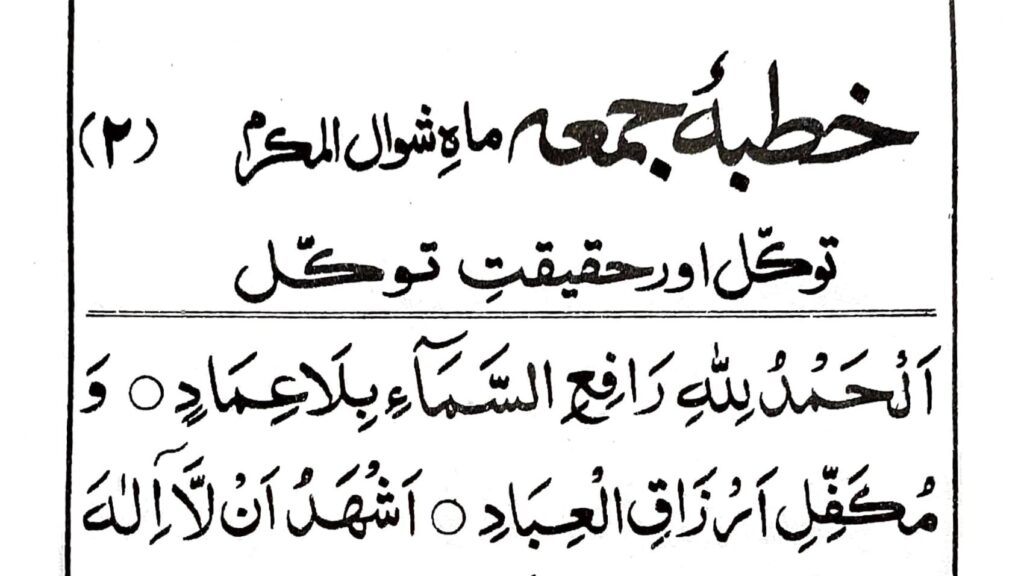 خطبۂ جمعہ ماہِ شوال المکرم (۲)
توکّل اور حقیقتِ توکّل
اَلْحَمْدُ لِلّٰهِ رَافِعِ السَّمَآءِ بِلَا عِمَادٍ ○ وَ
مُكَفِّلِ اَرْزَاقِ الْعِبَادِ ○ اَشْهَدُ اَنْ لَّآ اِلٰهَ